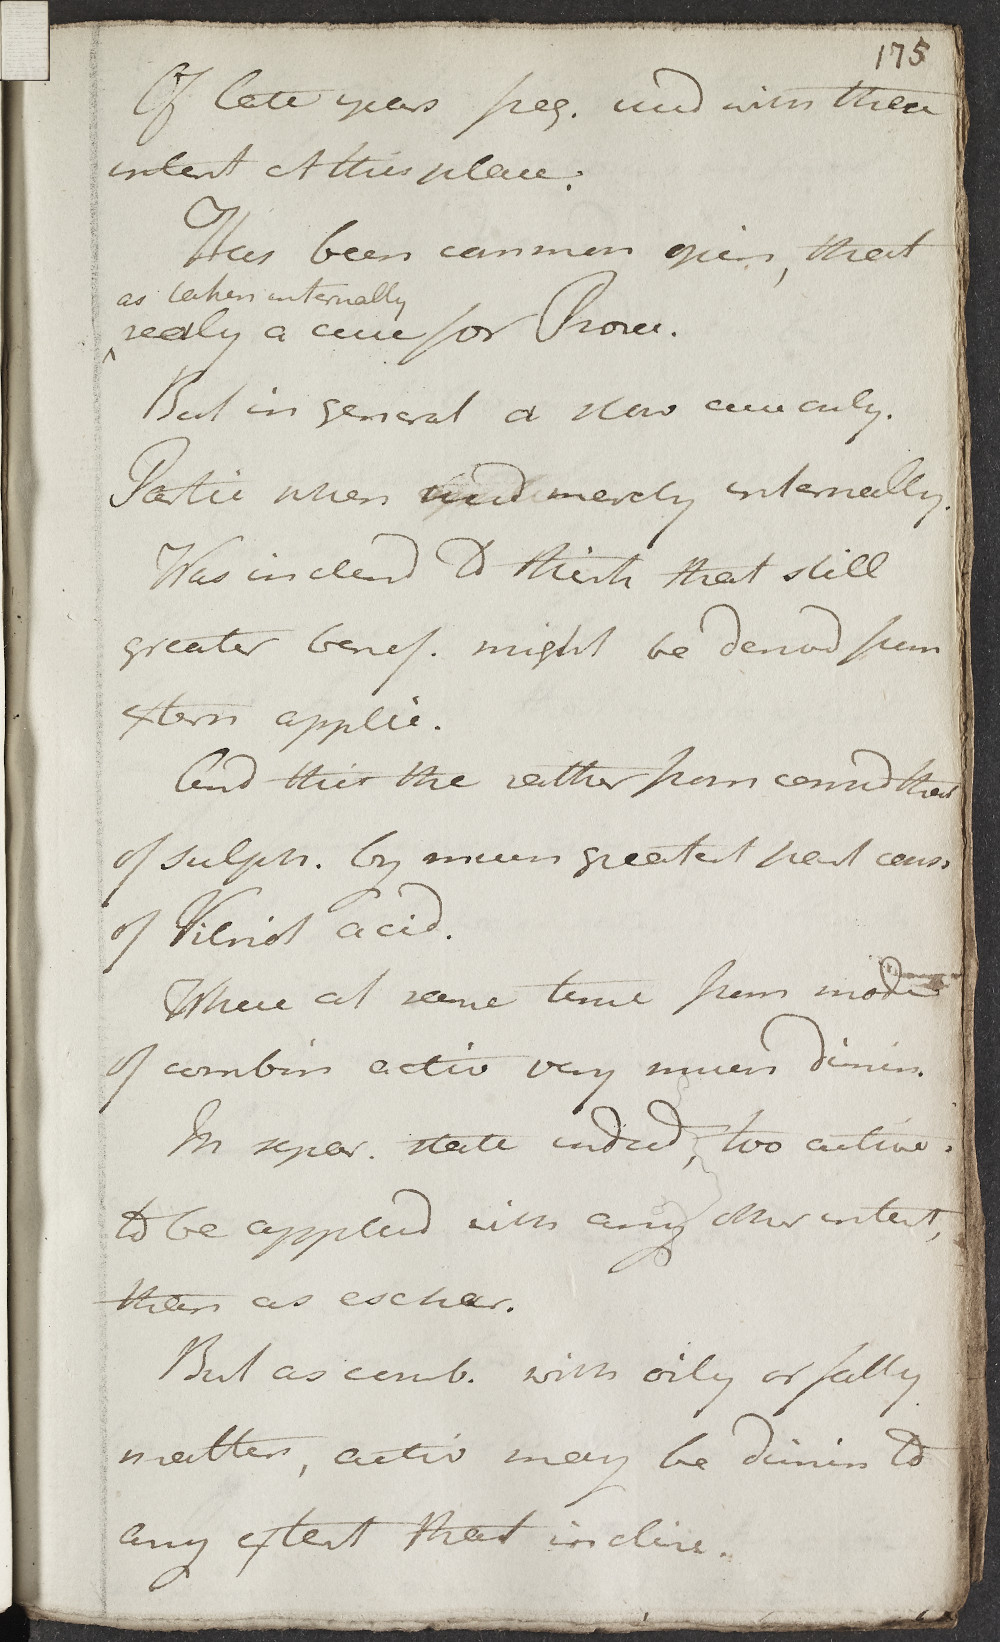 175
Of late years freq. used with then
intent at this place.
Has been common opin, that
as taken internally
really a cure for Psora.
But in general a slow cure only.
Partic when used merely internally.
Was inclend to think that still
greater benef. might be derivd from
extern applic.
And this the rather from considthat
of sulph. by much greatest part cons.
of Vitriol acid.
Where at same time from mode
of combin activ very much dimin.
In separ. state indeed, too active
to be applied with any other intent,
than as eschar.
But as comb. with oily or fatty
matters, activ may be dimin to
any extent that incline.